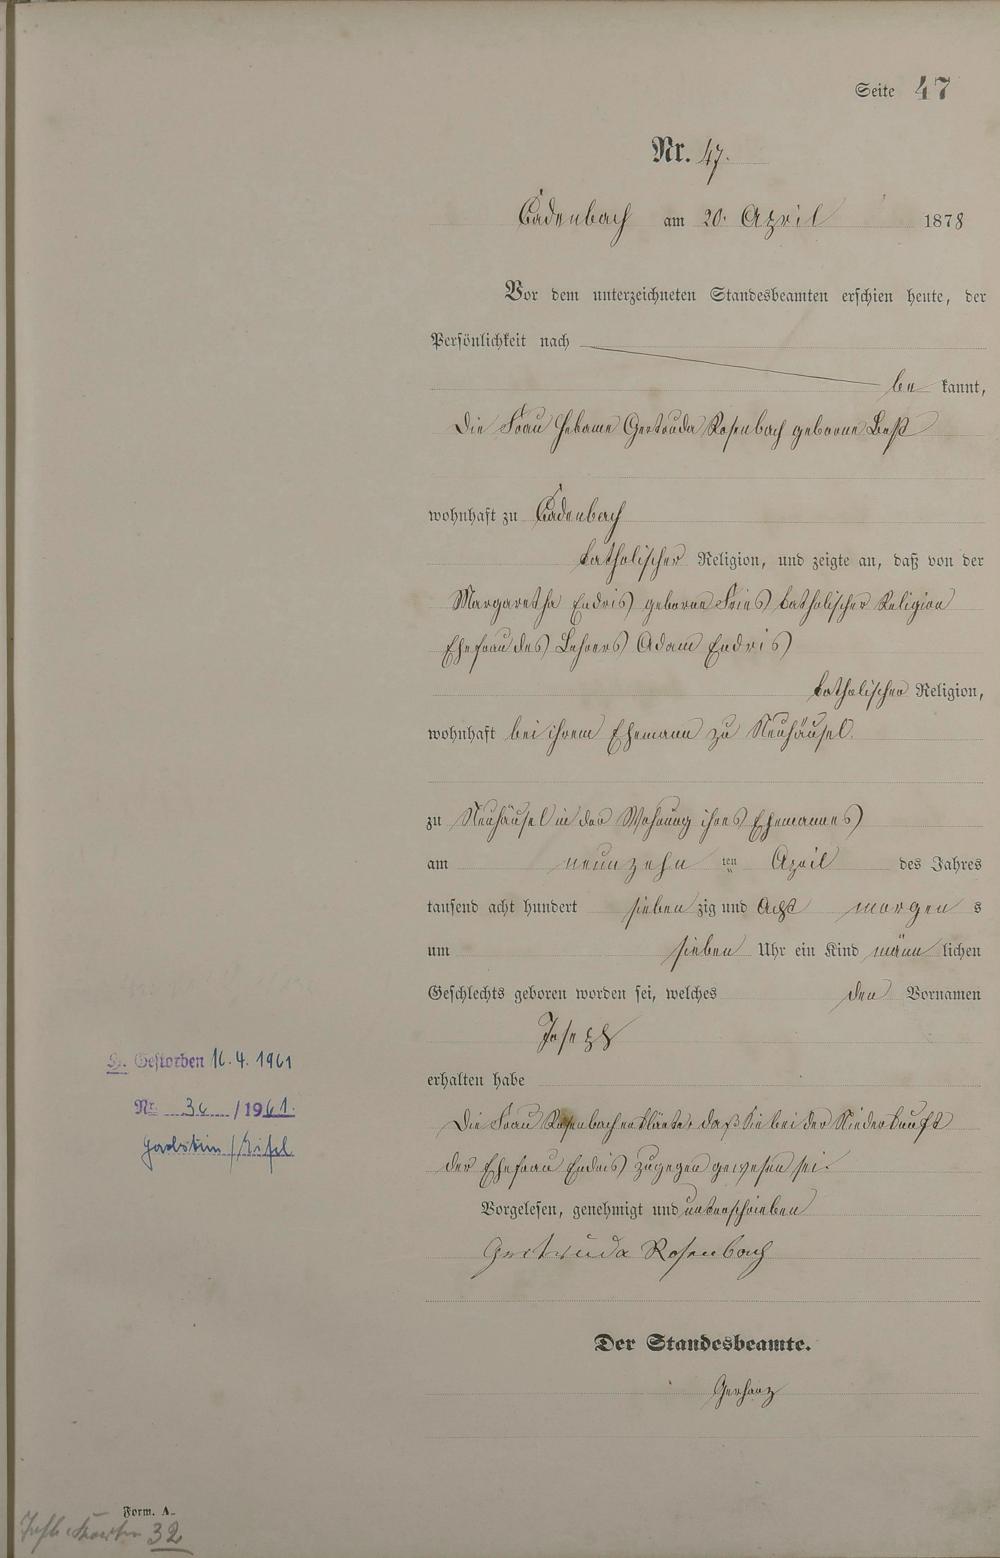 Seite 47
Nr. 47.
Cadenbach am 20. April 1878
Vor dem unterzeichneten Standesbeamten erschien heute, der
Persönlichkeit nach
be kannt,
die Frau Hebame Gertruda Rosenbach geborne Best
wohnhaft zu Cadenbach
katholischer Religion, und zeigte an, daß von der
Margaretha Endris geborne Fries katholischer Religion
Ehefrau des Lehrers Adam Endris
katholischer Religion,
wohnhaft bei ihrem Ehemann zu Neuhäusel.
zu Neuhäusel in der Wohnung ihres Ehemannes
am neunzehn ten April des Jahres
tausend acht hundert sieben zig und Acht morgen s
um sieben Uhr ein Kind männ lichen
Geschlechts geboren worden sei, welches den Vornamen
Joseph
erhalten habe
Die Frau Rosenbach erklärte, daß sie bei der Niederkunft
der Ehefrau Endris zugegen gewesen sei.
Vorgelesen, genehmigt und unterschrieben
Gertruda Rosenbach
Der Standesbeamte.
Gerharz
H. Gestorben 16.4.1961
Nr. 36 /1961.
/Eifel
Form. A.
32